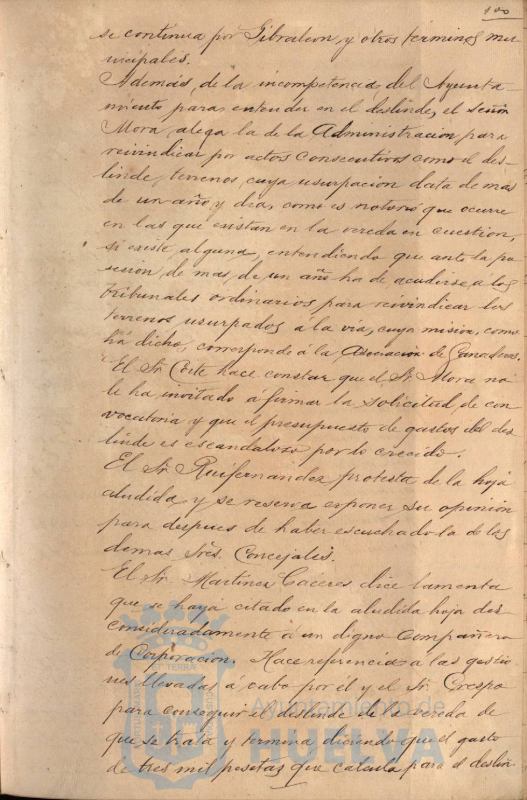 100
se continúa por Gibraleon, y otros términos mu-
nicipales.
Además, de la incompetencia del Ayunta-
miento para entender en el deslinde, el señor
Mora, alega la de la Administracion para
reivindicar por actos consecutivos como el des-
linde, terrenos, cuya usurpacion data de mas
de un año y dia, como es notorio que ocurre
en las que existan en la vereda en cuestion,
si existe alguna, entendiendo que ante la po-
sesión de mas de un año ha de acudirse a los
tribunales ordinarios para reivindicar los
terrenos usurpados a la via, cuya mision, como
ha dicho, corresponde á la Asociacion de Ganaderos.
El Sr. Corte hace constar que el Sr. Mora no
le ha invitado á firmar la solicitud de con-
vocatoria y que el presupuesto de gastos del des-
linde es escandaloso por lo crecido.
El Sr. Ruifernandez protesta de la hoja
aludida y se reserva exponer su opinión
para despues de haber escuchado la de los
demas Sres. Concejales.
El Sr. Martinez Cáceres dice lamenta
que se haya citado en la aludida hoja des-
consideradamente á un digno Compañero
de Corporacion. Hace referencia a las gestio-
nes llevadas á cabo por él y el Sr. Crespo
para conseguir el deslinde de la vereda de
que se trata y termina diciendo que el gasto
de tres mil pesetas que calcula para el deslin-
Ayuntamiento de
HUELVA